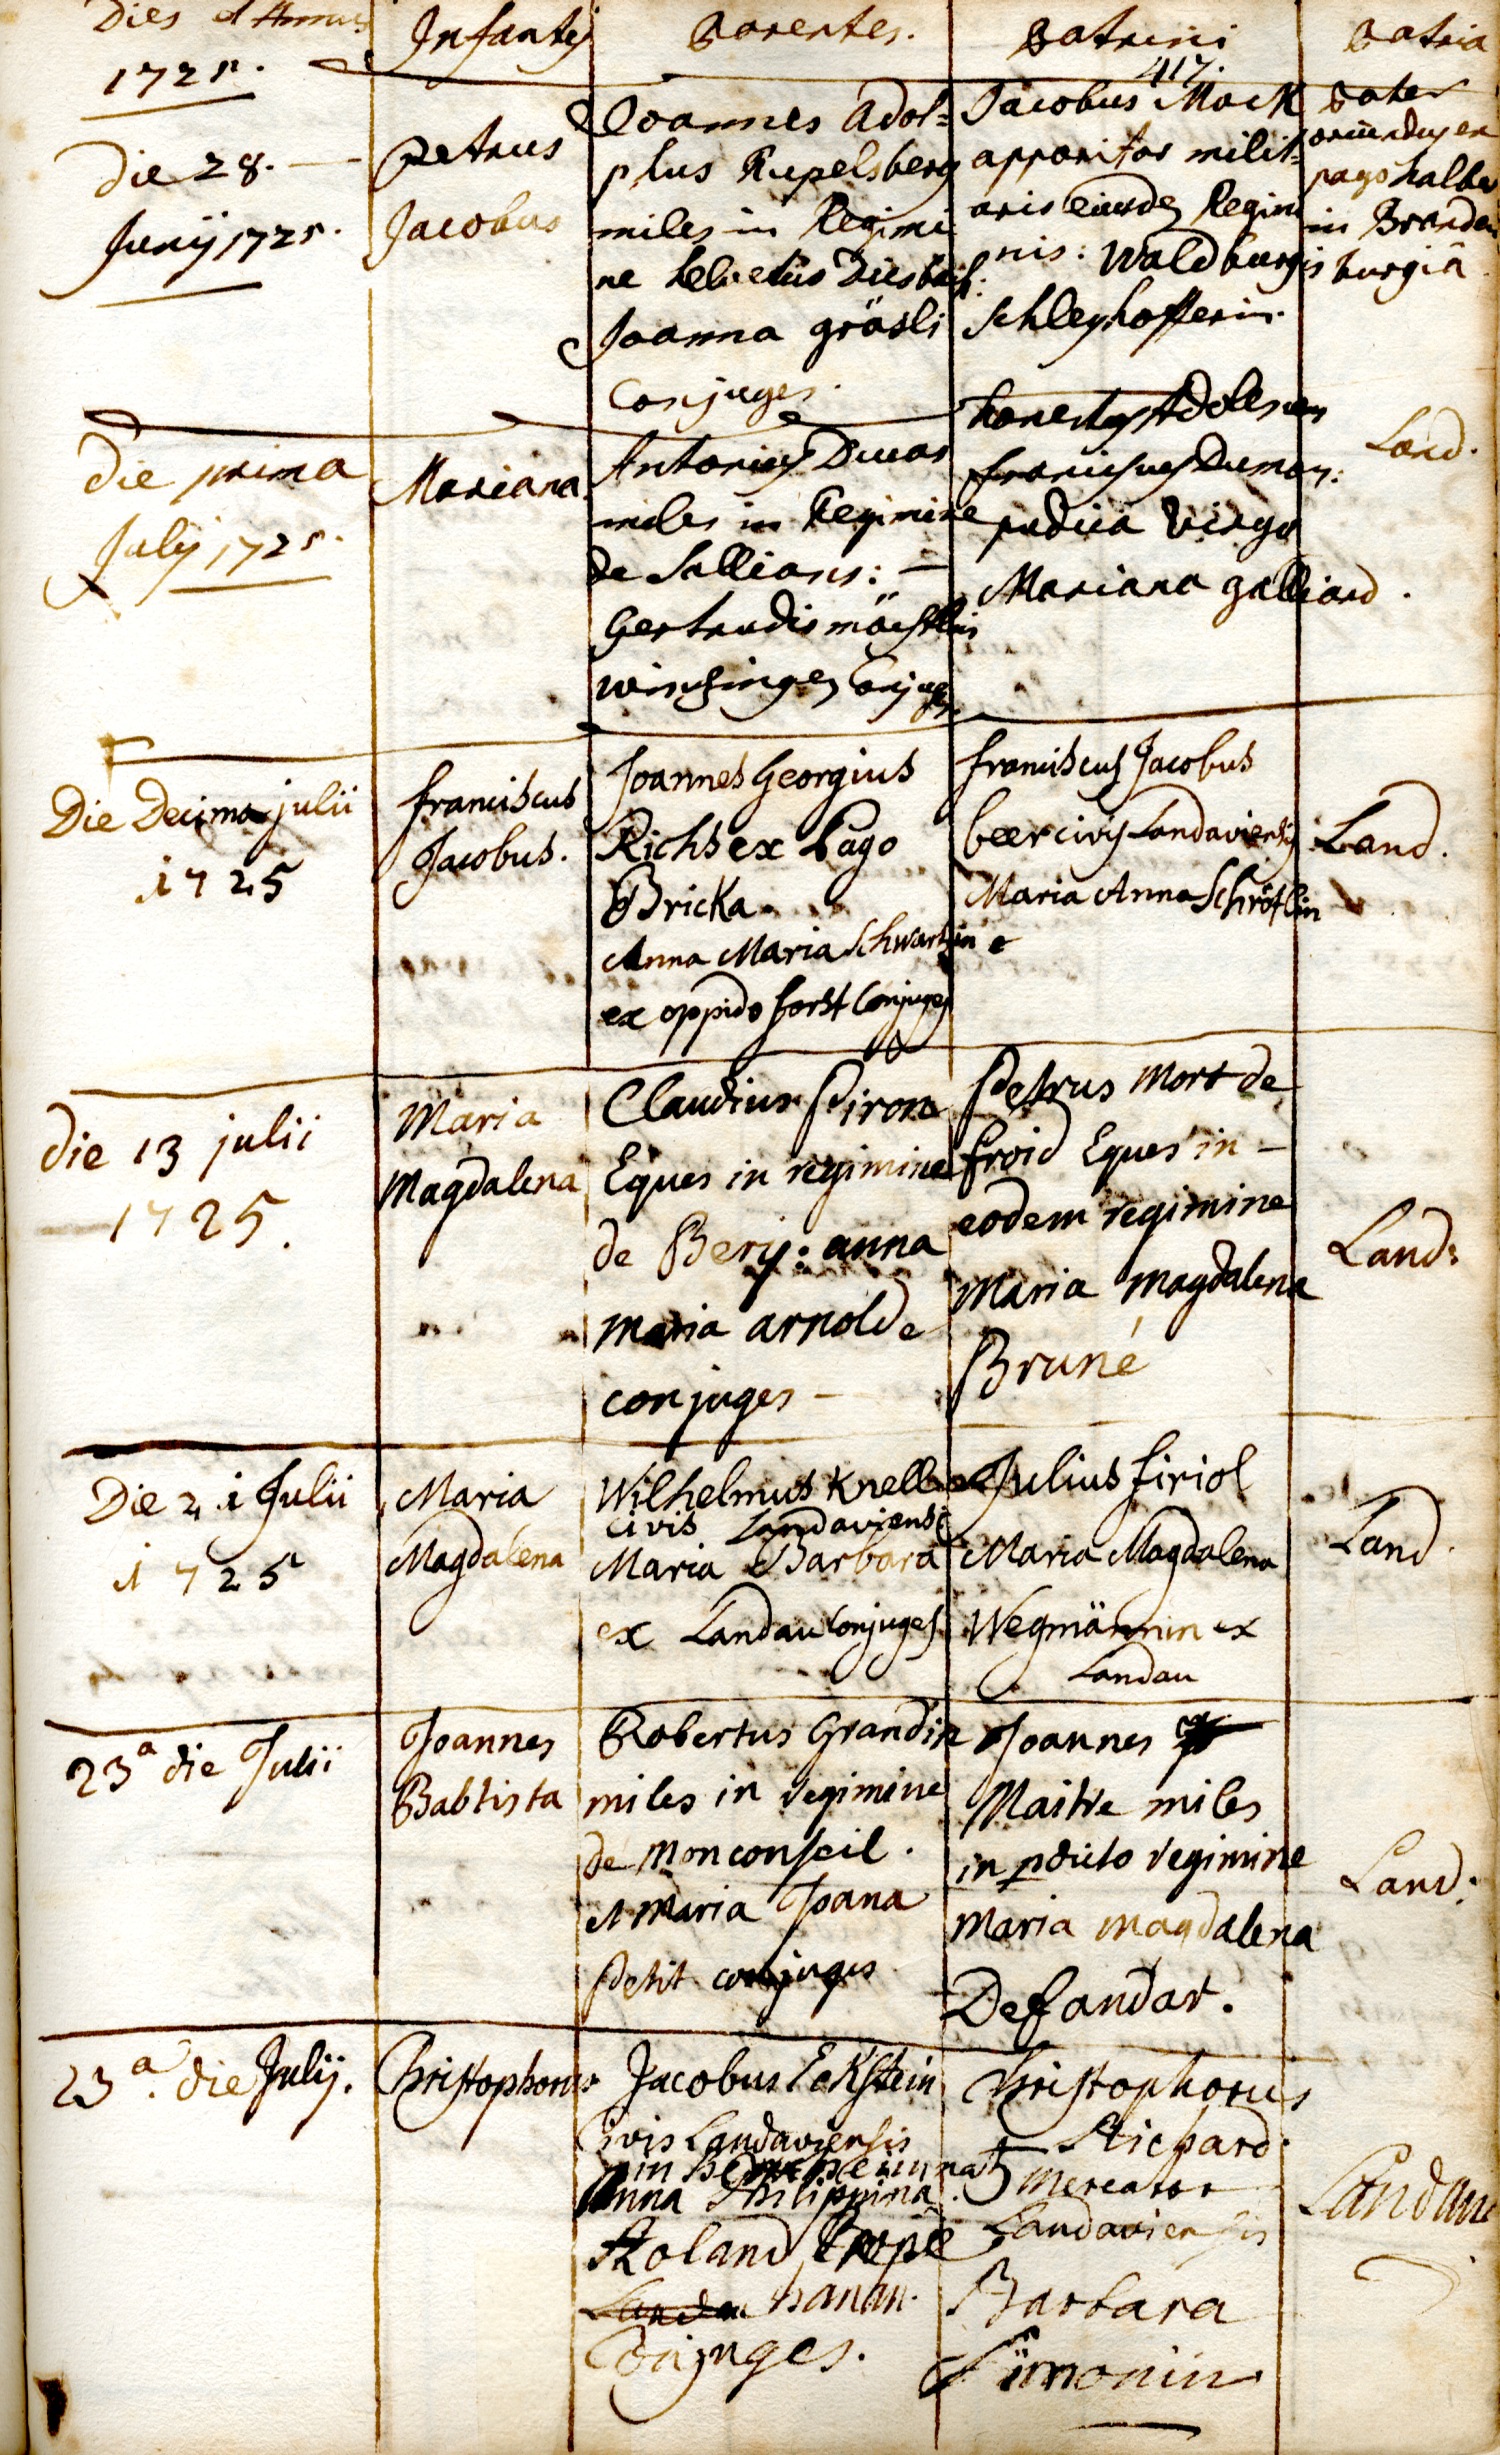 Dies et Annus
1725.
Infantes
Parentes.
Patrini
417.
Patria
Die 28.
Junij 1725.
Petrus
Jacobus
Joannes Adol=
phus Rupelsberg
miles in Regimi
ne helvetiis Diesbach.
Joanna gräsli
Conjuges.
Jacobus Mock
apparitor milit=
aris eiusdem Regimi
nis: Waldburgis
Schleyhofferin.
Pater
oriundus ex
pago halbe
in Branden
burgiâ
Die prima
Julij 1725.
Mariana
Antonius Ducas
miles in Regimine
de Sallians:
Gertrudis
Conjuges
honestus Adolescens
franciscus Dumon:
pudica Virgo
Mariana galliard.
Land.
Die Decima julii
1725
franciscus
Jacobus.
Joannes Georgius
Richs ex Pago
Bricka
Anna Maria Schwartzin
ex oppido forst Conjuges
franciscus Jacobus
beer civis Landaviensis
Maria Anna Schröflin
Land.
die 13 julii
1725.
Maria
Magdalena
Claudius Piron
Eques in regimine
de Bery: anna
maria arnolde
conjuges
Petrus mort de
froid Eques in
eodem regimine
Maria magdalena
Bruné
Land:
Die 21 Julii
1725
Maria
Magdalena
Wilhelmus Kneller
civis Landaviensis
Maria Barbara
ex Landau Conjuges
Julius firiol
Maria Magdalena
Wegmännin ex
Landau
Land.
23a die Julii
Joannes
Babtista
Robertus Grandin
miles in regimine
de Monconseil.
et Maria Joana
Petit conjuges
Joannes
Maitre miles
in pdicto regimine
Maria Magdalena
Defandar.
Land:
23a. die Julij.
Christophorus
Jacobus Eckstein
Civis Landaviensis
Anna Philippina
Roland prope
Landau hanau.
Conjuges.
Christophorus
Richard
Mercator
Landaviensis
Barbara
Simonin
Landau